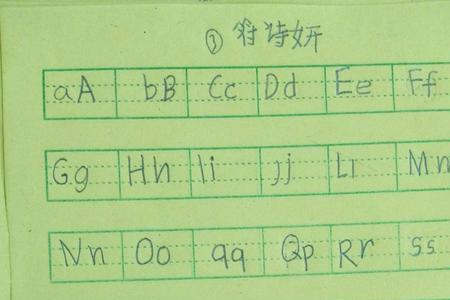 ① 诗妍
aA bB Cc Dd Ee Ff
Gg Hh Ii jj Ll
Nn Oo qq Qp Rr Ss